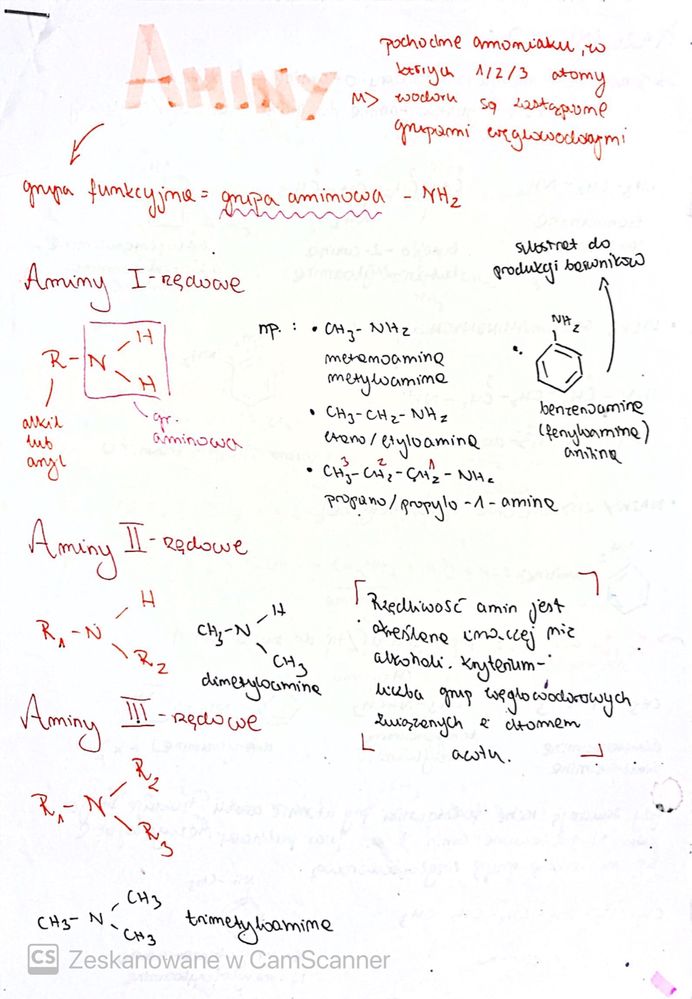 AMINY
pochodne amoniaku, w
których 1/2/3 atomy
wodoru są zastąpione
grupami węglowodorowymi
grupa funkcyjna = grupa aminowa - NH₂
Aminy I-rzędowe
R-N
H
H
alkil
lub
aryl
gr.
aminowa
np. : • CH₃- NH₂
metanoamina
metyloamina
• CH₃-CH₂-NH₂
etano/etyloamina
3 2 1
• CH₃-CH₂-CH₂-NH₂
propano/propylo-1-amina
substrat do
produkcji barwników
NH₂
benzenoamina
(fenyloamina)
anilina
Aminy II-rzędowe
H
R₁-N
R₂
H
CH₃-N
CH₃
dimetyloamina
Rzędowość amin jest
określana inaczej niż
alkoholi. Kryterium-
liczba grup węglowodorowych
związanych z atomem
azotu.
Aminy III-rzędowe
R₂
R₁-N
R₃
CH₃
CH₃-N
CH₃
trimetyloamina
CS Zeskanowane w CamScanner